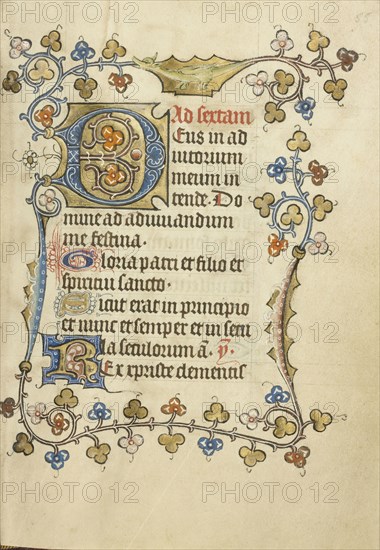 Ad sextam
Deus in ad
iutorium
meum in
tende. Do
mine ad adiuuandum
me festina.
Gloria patri et filio et
spiritui sancto.
Sicut erat in principio
et nunc et semper et in secu
la seculorum a. ym.
Rex xpriste clementis
PHOTO 12